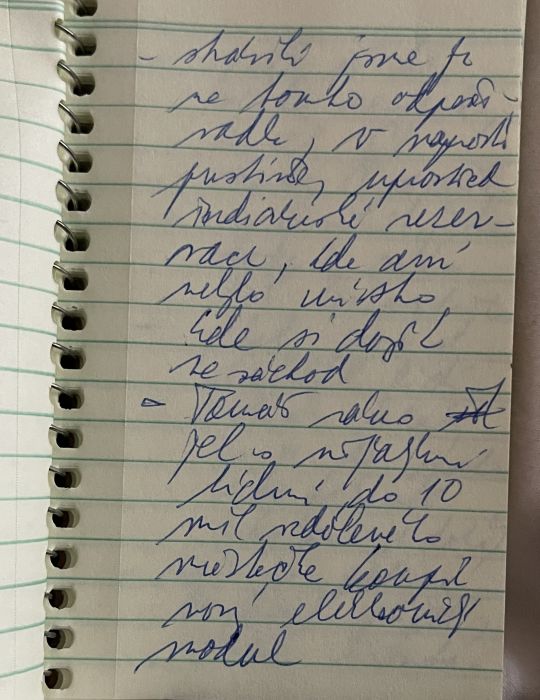 - shodili jsme to
na tomto odpoči-
vadle, v naprosté
pustině, uprostřed
indiánské rezer-
vace, kde ani
nebylo místo
kde si dojít
na záchod
- Tomáš ráno
jel s nějakými
lidmi do 10
mil vzdáleného
městečka koupit
nový elektronický
modul